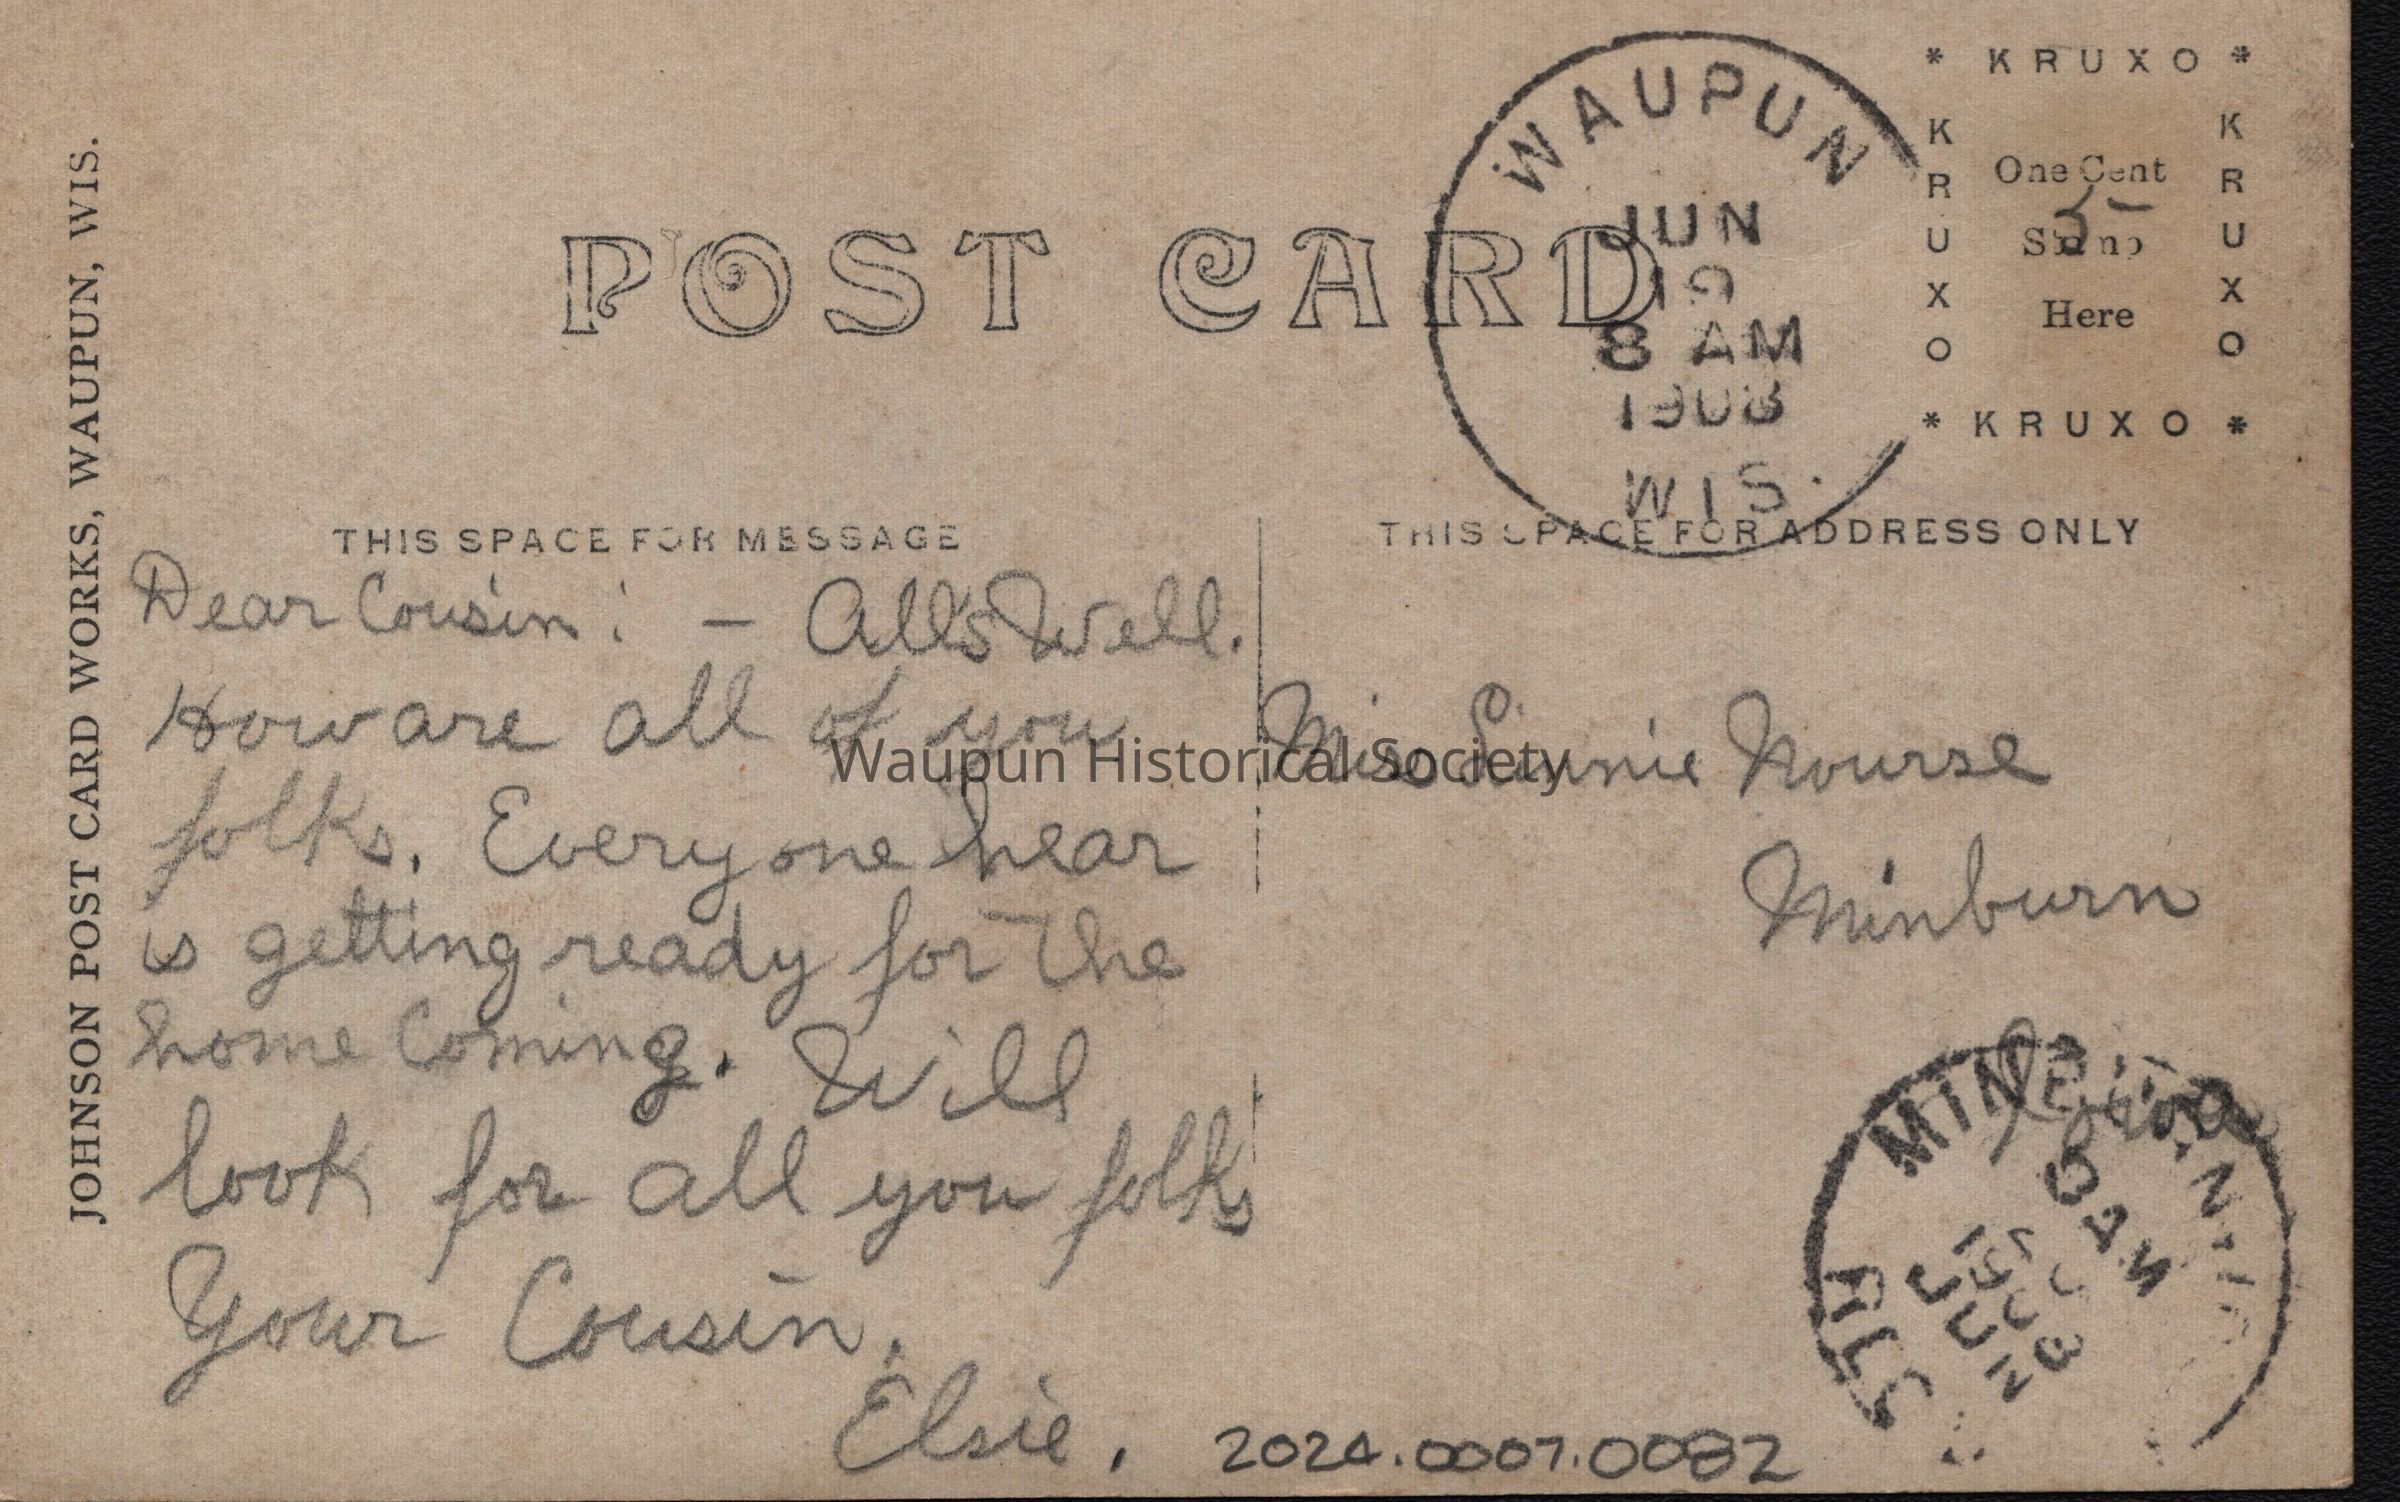 JOHNSON POST CARD WORKS, WAUPUN, WIS.
POST CARD
WAUPUN
JUN
19
8 AM
1908
WIS.
* KRUXO *
KRUXO
KRUXO
One Cent
Stamp
Here
* KRUXO *
THIS SPACE FOR MESSAGE
THIS SPACE FOR ADDRESS ONLY
Dear Cousin: – All's Well.
How are all of you
folks. Everyone hear
is getting ready for the
home Coming. Will
look for all you folks
Your Cousin,
Elsie.
Miss Nourse
Minburn
Iowa
Waupun Historical Society
AM
JUN
2024.0007.0082